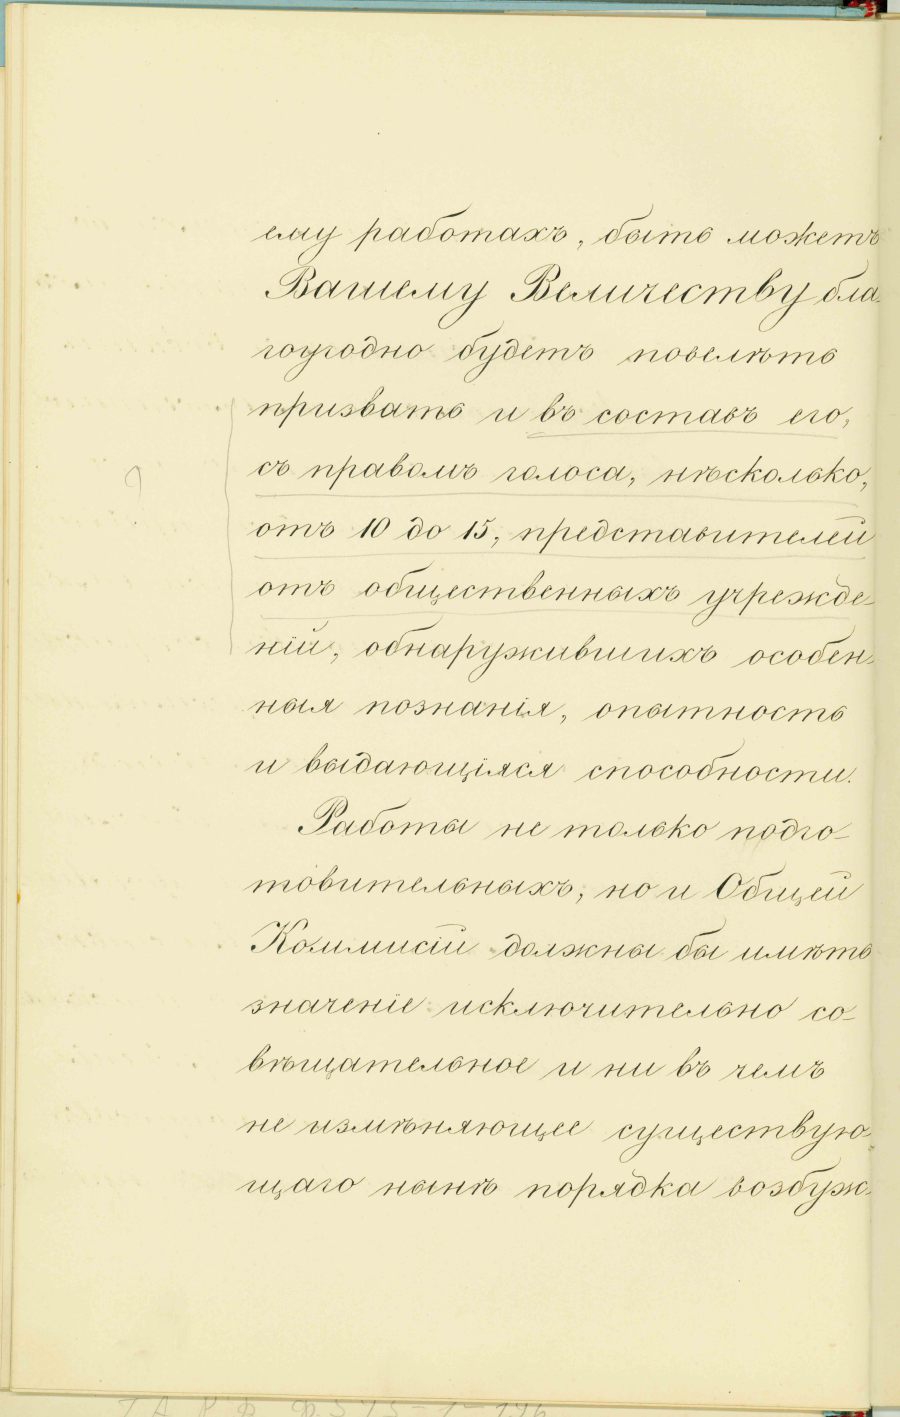 ему работахъ, быть можетъ
Вашему Величеству бла-
гоугодно будетъ повелѣть
призвать и въ составъ его,
съ правомъ голоса, нѣсколько,
отъ 10 до 15, представителей
отъ общественныхъ учрежде-
ній, обнаружившихъ особен-
ныя познанія, опытность
и выдающіяся способности.
Работы не только подго-
товительныхъ, но и Общей
Коммисіи должны бы имѣть
значеніе исключительно со-
вѣщательное и ни въ чемъ
не измѣняющее существую-
щаго нынѣ порядка возбуж-
?